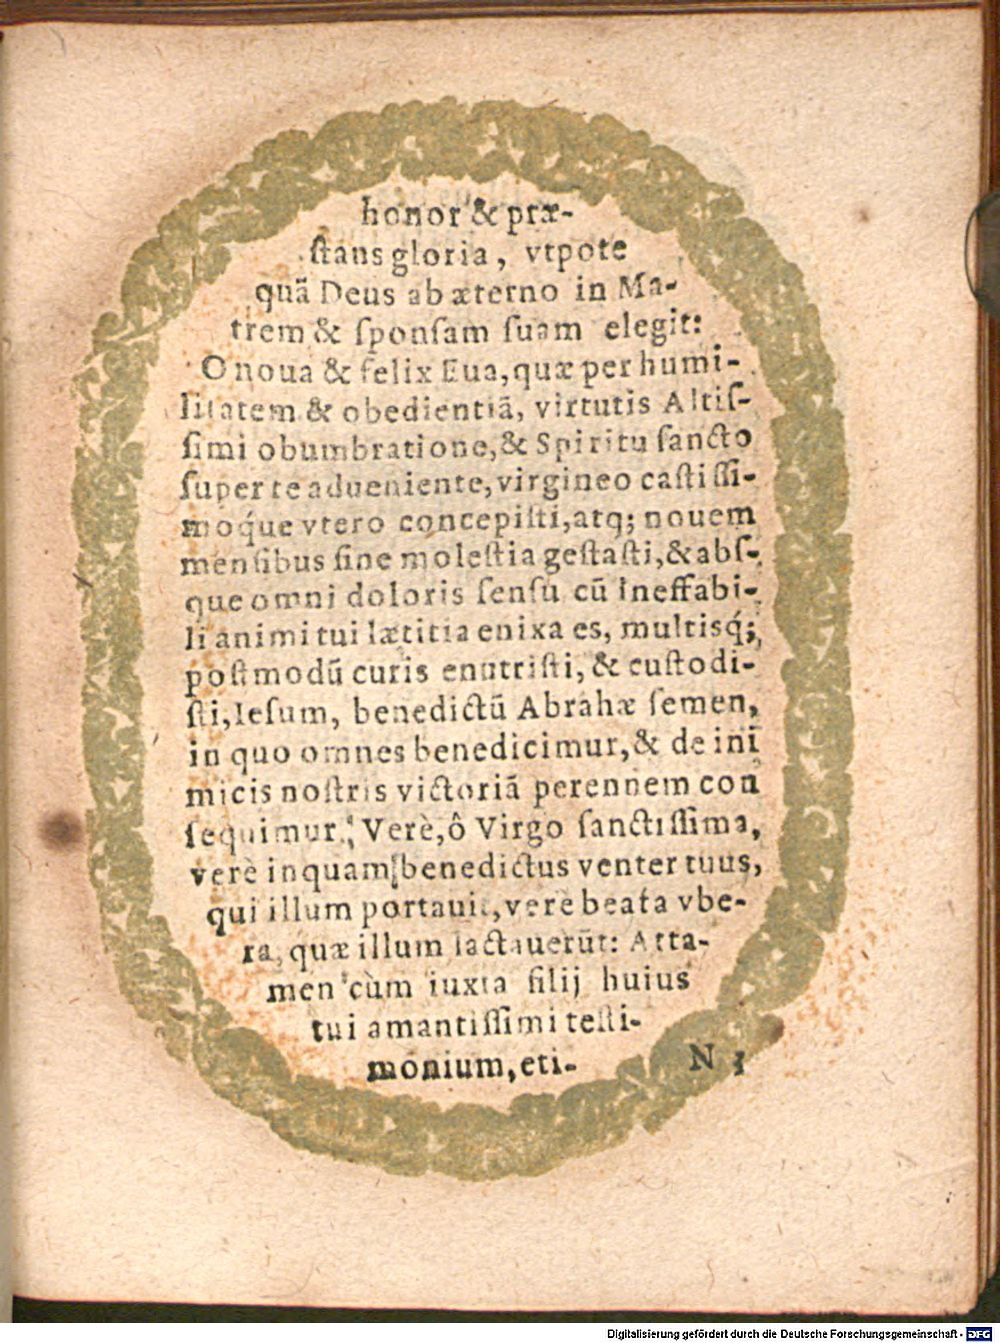 honor & præ-
ſtans gloria, vtpote
quã Deus ab æterno in Ma-
trem & ſponſam ſuam elegit:
O noua & felix Eua, quæ per humi-
litatem & obedientiã, virtutis Altiſ-
ſimi obumbratione, & Spiritu ſancto
ſuper te adueniente, virgineo caſtiſſi-
moq́ue vtero concepiſti, atq; nouem
menſibus ſine moleſtia geſtaſti, & abſ-
que omni doloris ſenſu cũ ineffabi-
li animi tui lætitia enixa es, multisq́;
poſtmodũ curis enutriſti, & cuſtodi-
ſti, Ieſum, benedictũ Abrahæ ſemen,
in quo omnes benedicimur, & de ini
micis noſtris victoriã perennem con
ſequimur. Verè, ô Virgo ſanctiſſima,
verè inquam benedictus venter tuus,
qui illum portauit, verè beata vbe-
ra, quæ illum lactauerũt: Atta-
men cùm iuxta filij huius
tui amantiſſimi teſti-
monium, eti-
N 3
Digitalisierung gefördert durch die Deutsche Forschungsgemeinschaft - DFG